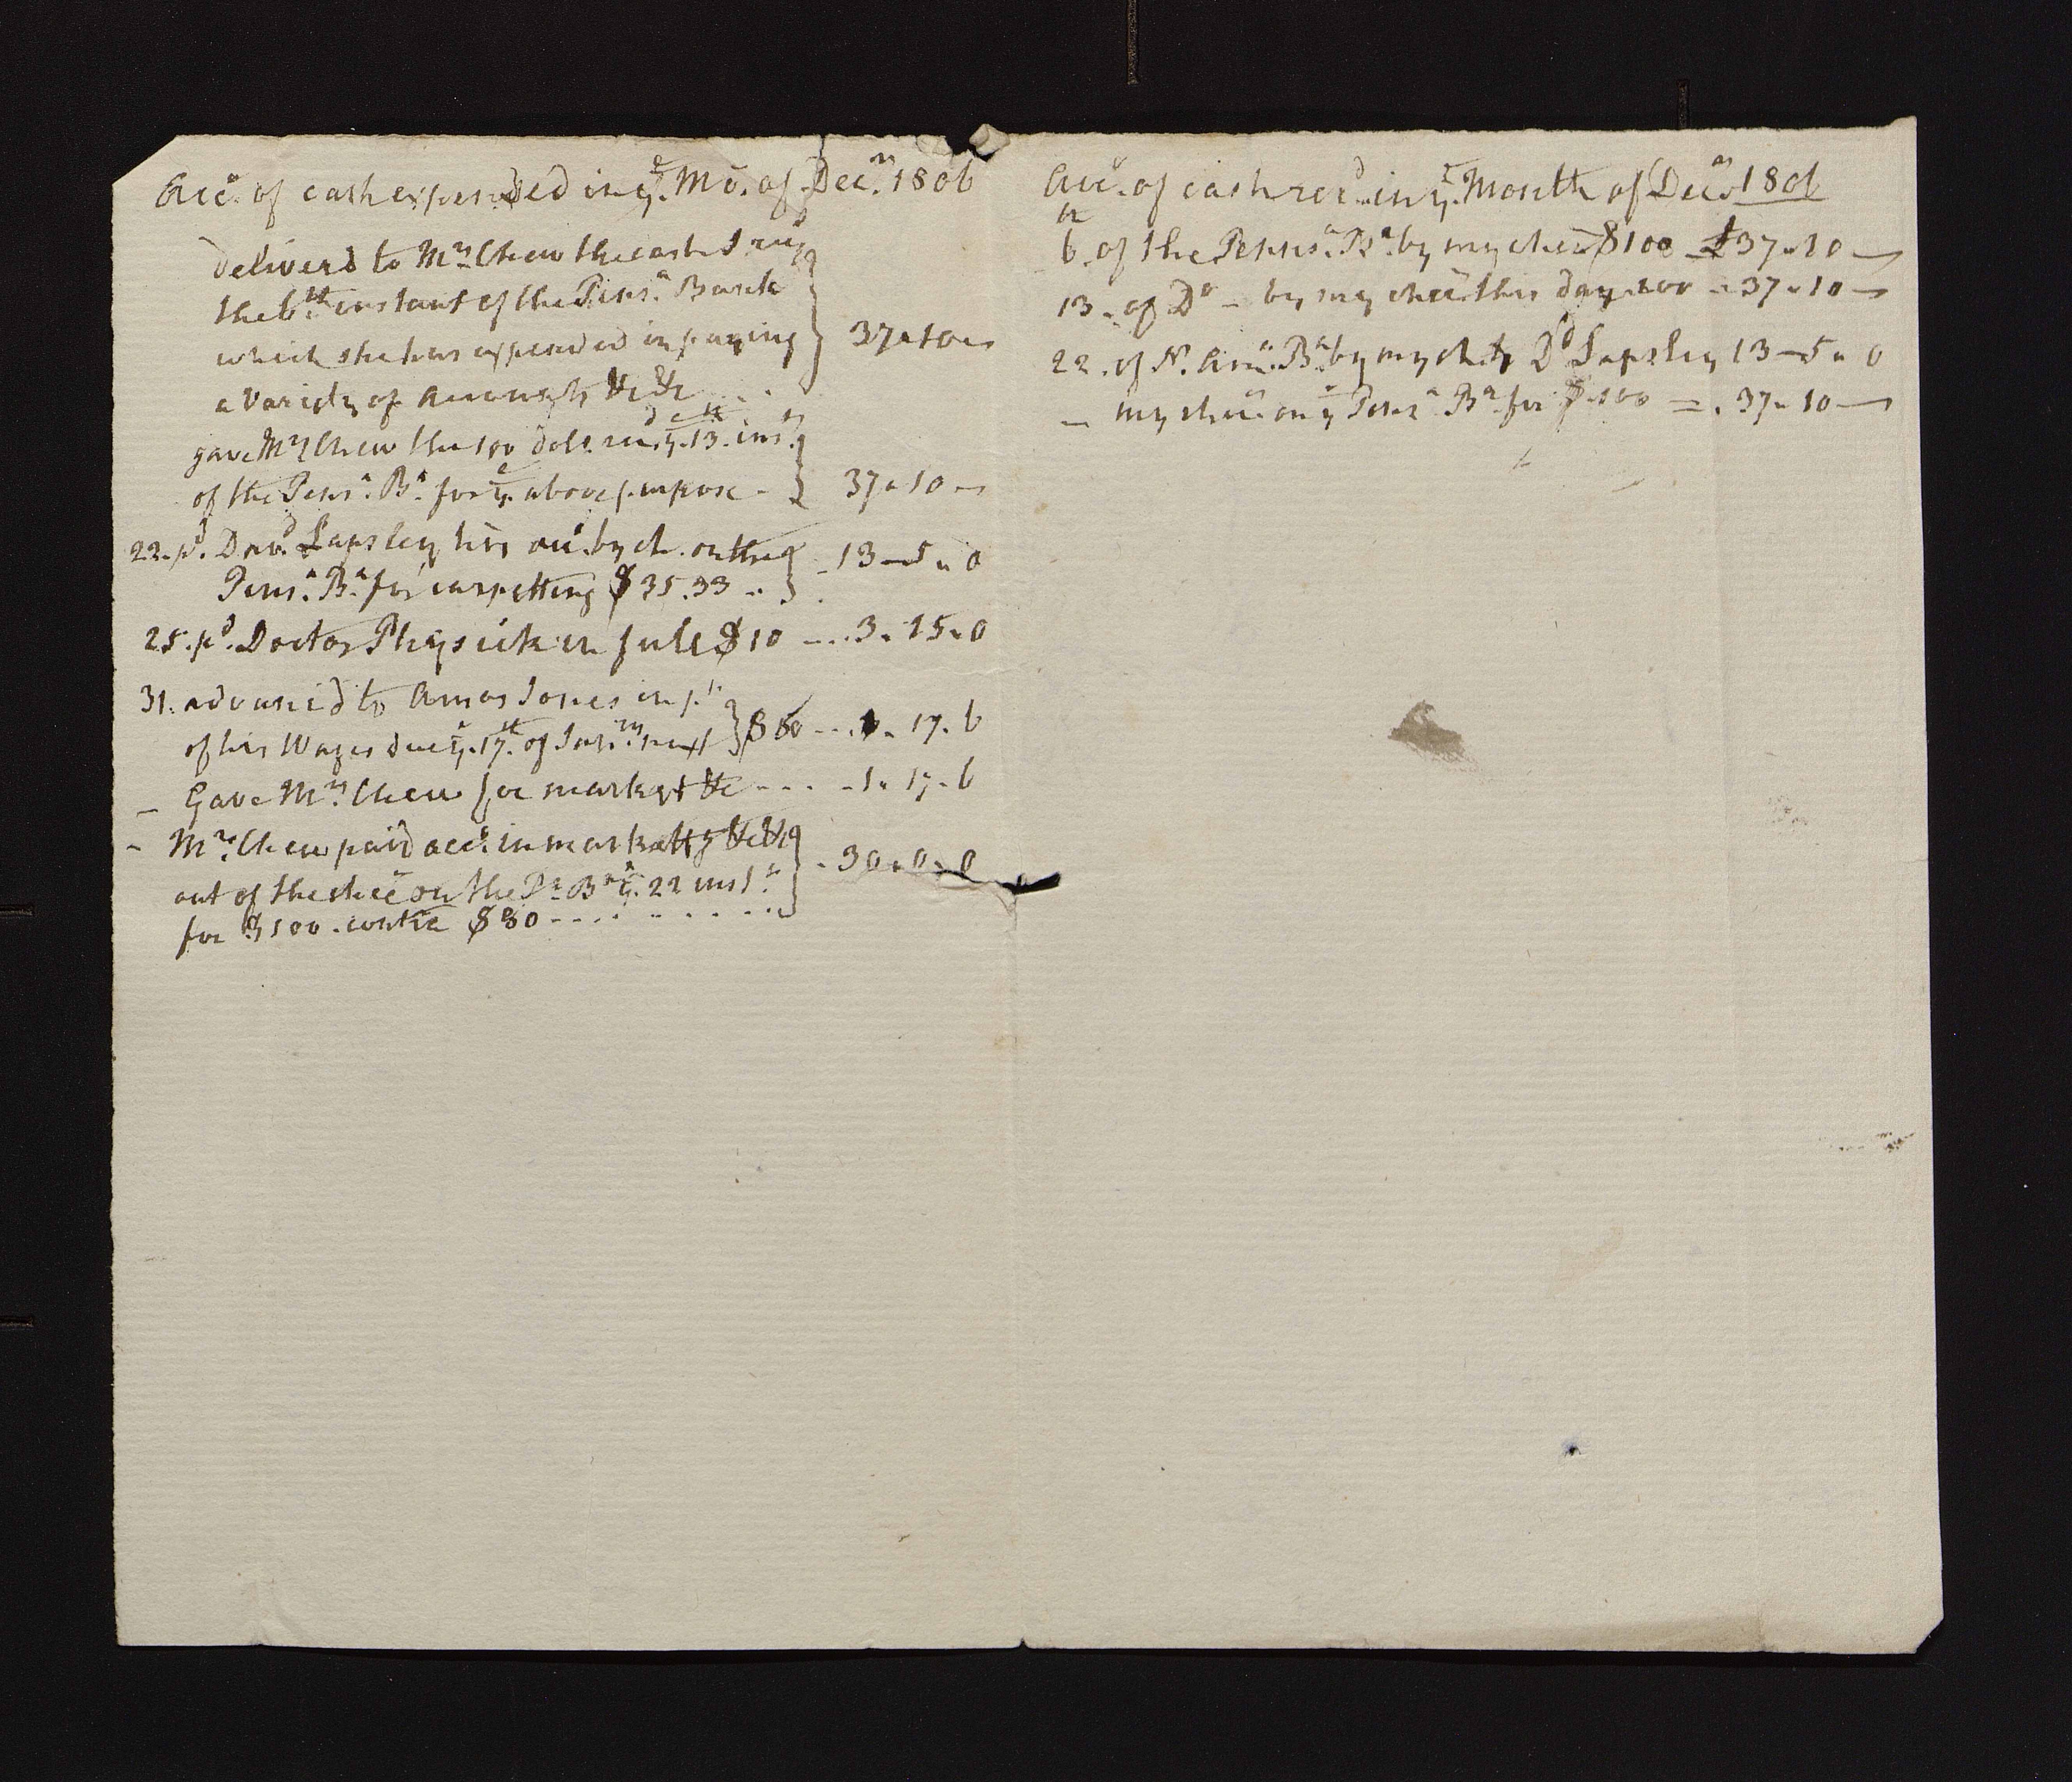 Acc.t of cash expended in y.e Mo. of Dec.r 1806
deliverd to Mrs. Chew the cash I
the 6.th instant of the Pens.a Bank
which she has expended in paying } 37 " 10 "
a variety of accounts &c &c
gave Mrs Chew the 100 doll. rec.d y.e 13.th ins.t
of the Pens.a B.k for y.e above purpose - } 37 " 10 -
22. p.d Dav.d Lapsley his acc.t by ch. on the
Pens.a B.k for carpetting $ 35.33 .. } - 13 - 5 " 0
25. p.d Doctor Physick in full $10 --- .3 " 15 " 0
31. advancd to Amos Jones in p.t
of his Wages due y.e 17.th of Jan.ry next } --- 1 " 17 . 6
- Gave Mrs. Chew for market &c --- - 1 " 17 - 6
- Mrs. Chew paid acc.ts in marketts &c &c
out of the chec on the P.a B.k y.e 22 inst. } - 30 " 0 " 0
for $100 . contra $80 - - - -
Acc.t of cash rec.d in y.e Month of Dec.r 1806
6.th of the Penns.a B.k by my chec $100 - £37 " 10 -
13 . of D.o - by my chec this day 100 - 37 " 10 -
22 . of N. Am.a B.k by my ch. to D.d Lapsley 13 - 5 " 0
- my chec on y.e Pens.a B.k for $ 100 = . 37 " 10 -